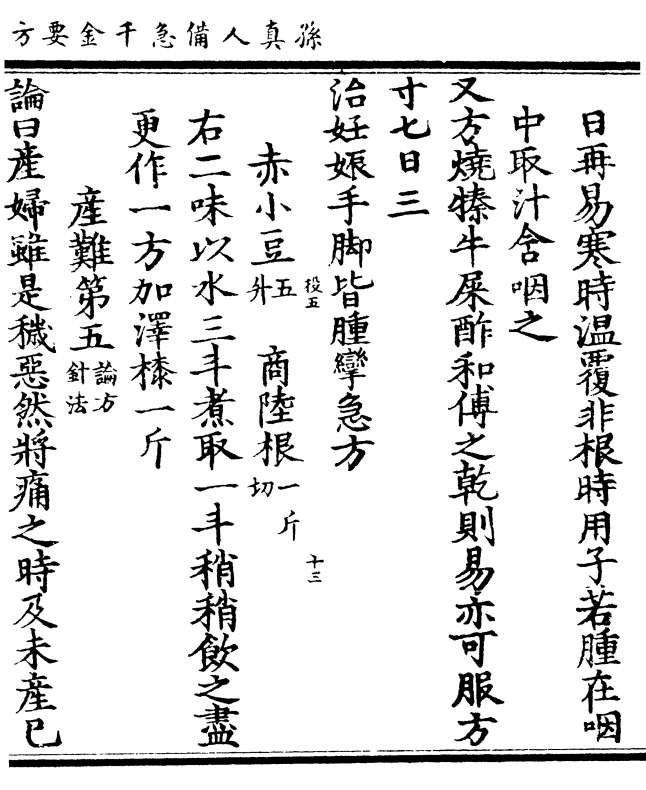 孫真人備急千金要方
日再易寒時温覆非根時用子若腫在咽
中取汁含咽之
又方燒㹛牛屎酢和傅之乾則易亦可服方
寸七日三
治妊娠手脚皆腫攣急方
赤小豆五升 商陸根一斤切
役五
十三
右二味以水三斗煮取一斗稍稍飲之盡
更作一方加澤𣾰一斤
産難第五論方針法
論曰産婦雖是穢惡然將痛之時及未産已